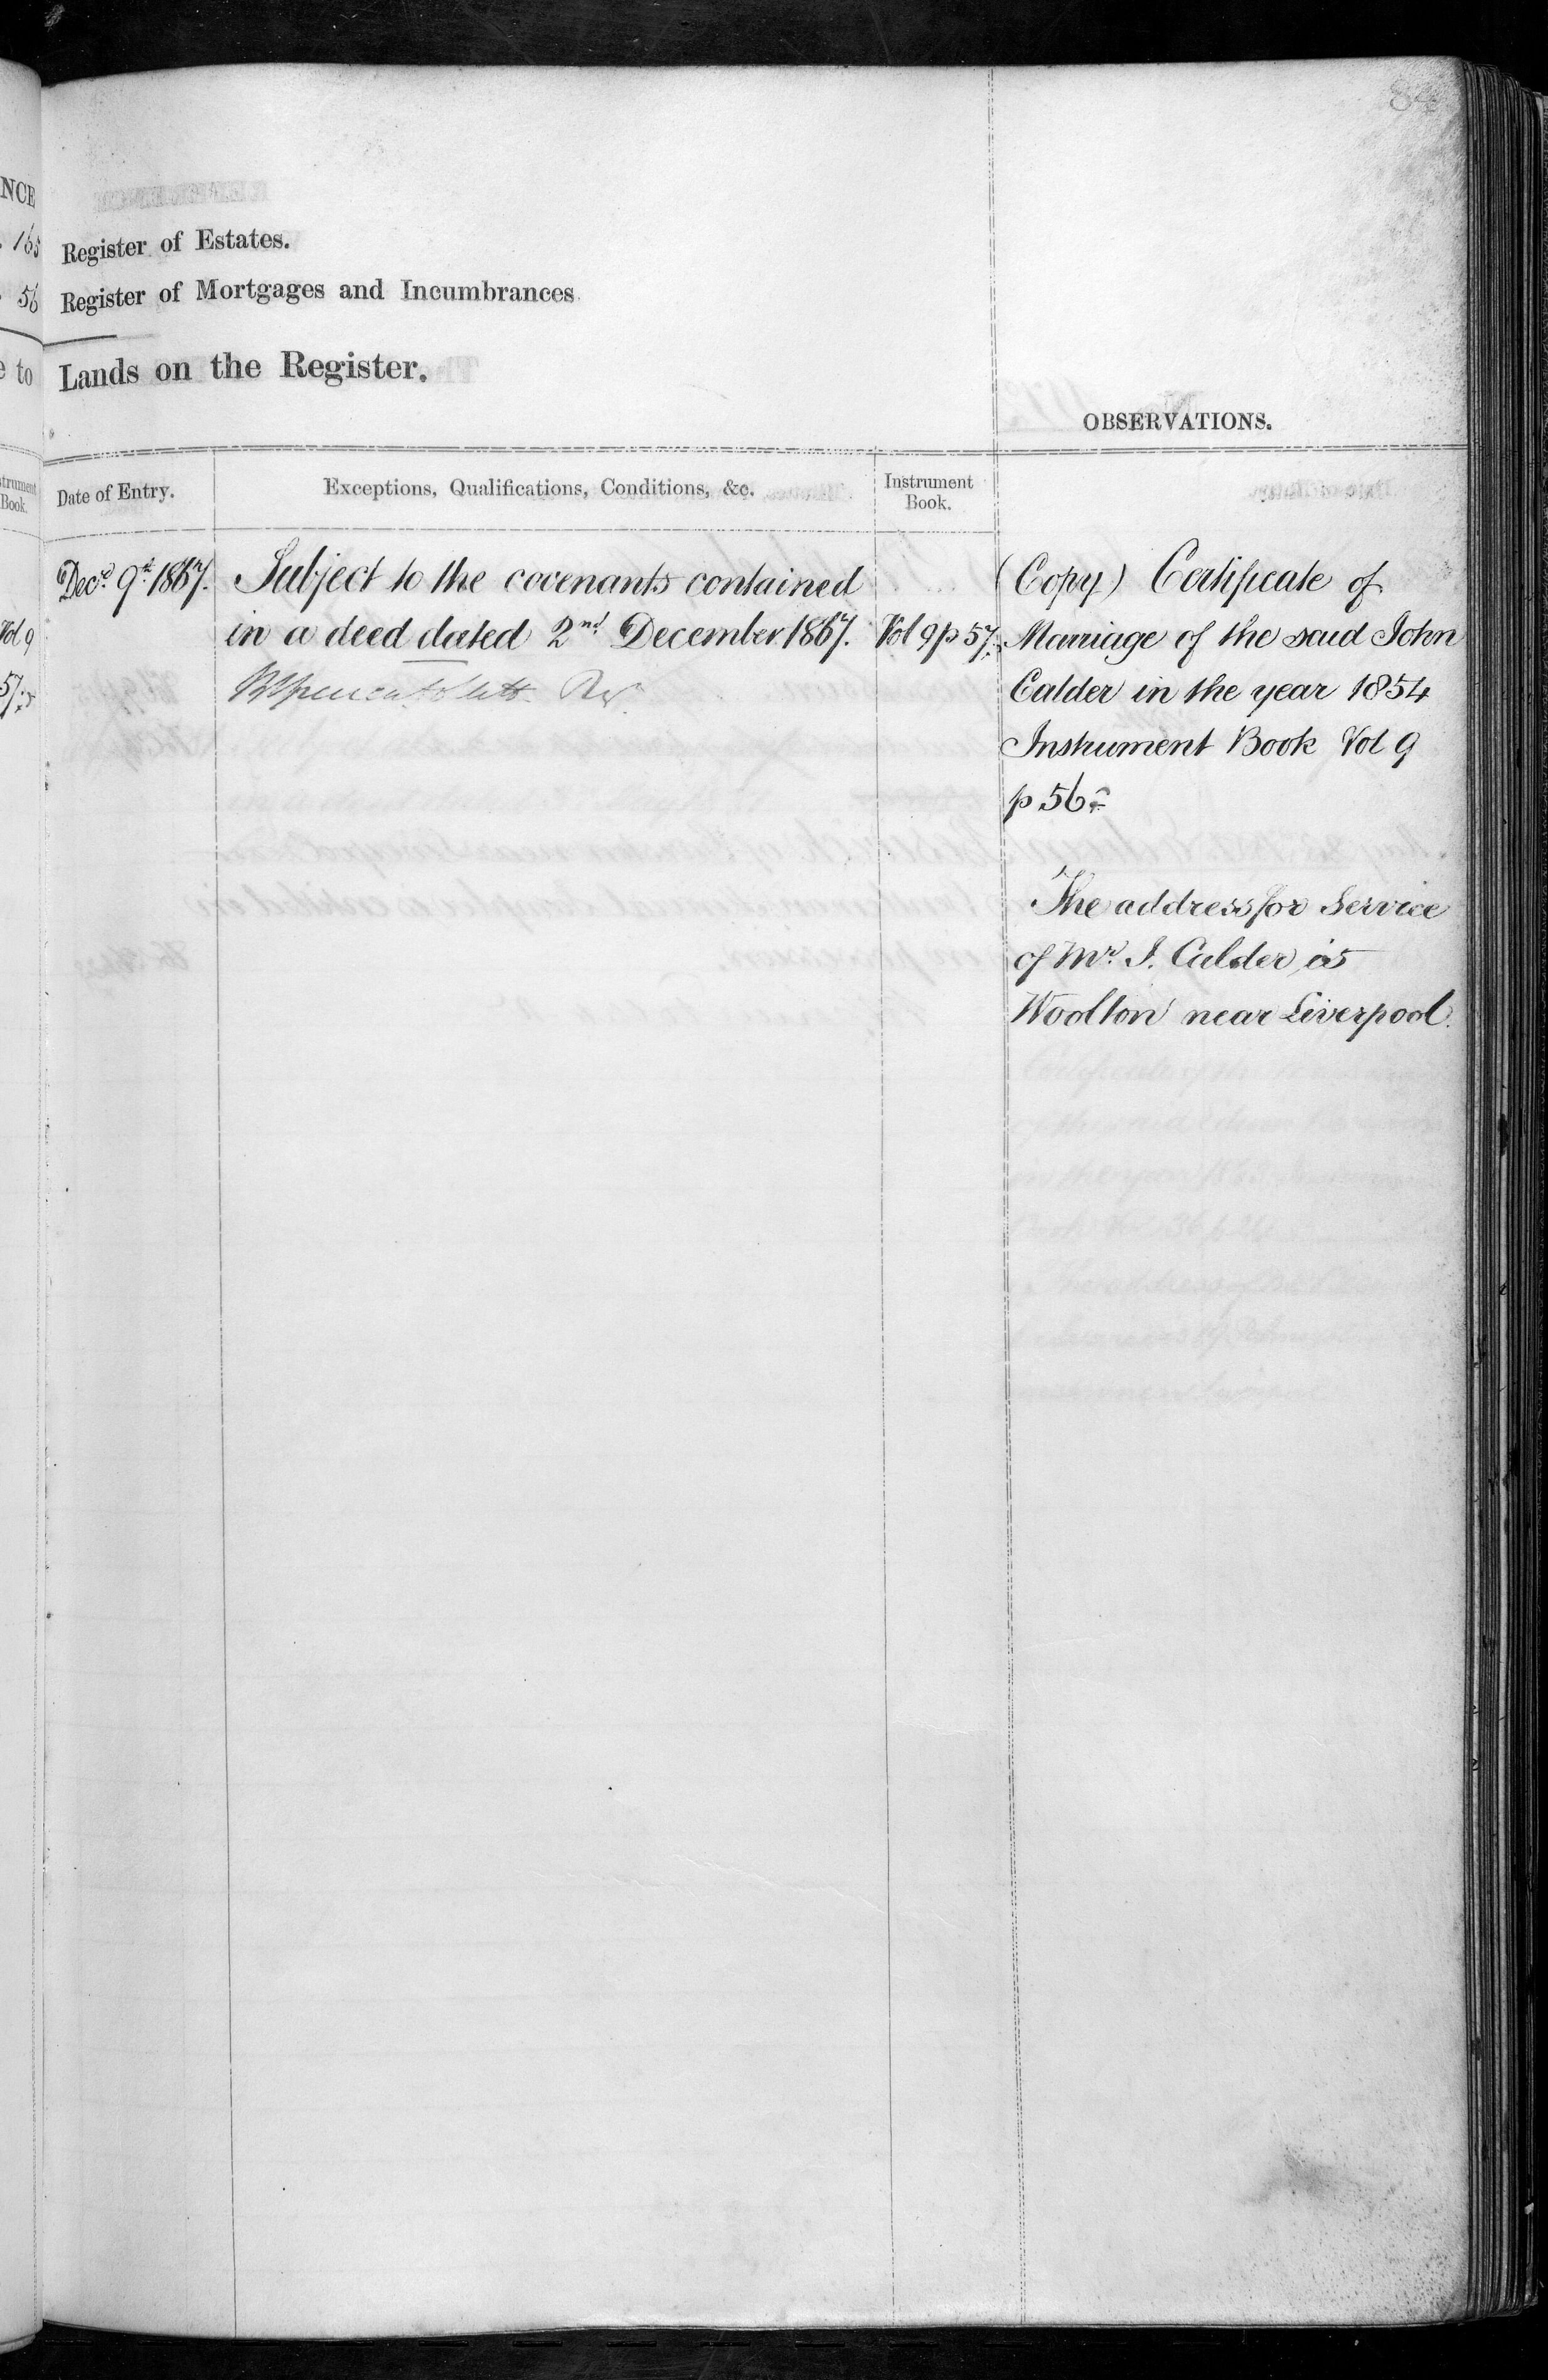 84
NCE
165
Register of Estates.
56
Register of Mortgages and Incumbrances
e to
Lands on the Register.
OBSERVATIONS.
strument
Book.
Date of Entry.
Exceptions, Qualifications, Conditions, &c.
Instrument
Book.
Decr 9th 1867.
Subject to the covenants contained
in a deed dated 2nd December 1867.
Vol 9 p 57
Vol 9
57
(Copy) Certificate of
Marriage of the said John
Calder in the year 1854
Instrument Book Vol 9
p 56
The address for Service
of Mr. J. Calder is
Woolton near Liverpool.